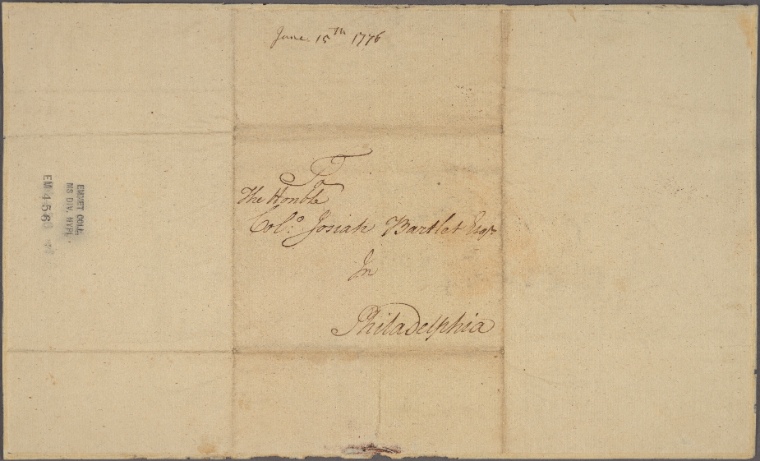 June 15th 1776
To
The Honble
Colo. Josiah Bartlet Esqr
In
Philadelphia
EMMET COLL.
MS DIV. NYPL.
EM 456